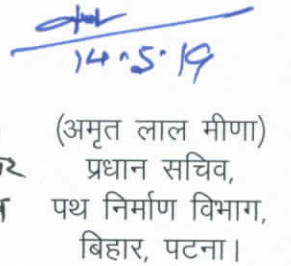 14.5.19
(अमृत लाल मीणा)
प्रधान सचिव,
पथ निर्माण विभाग,
बिहार, पटना।